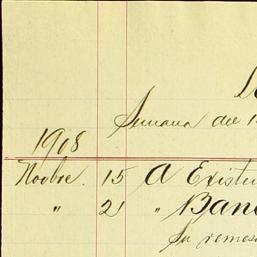 Semana del 1
1908
Novbre. 15 A Existen
" 21 " Banc
Su remes